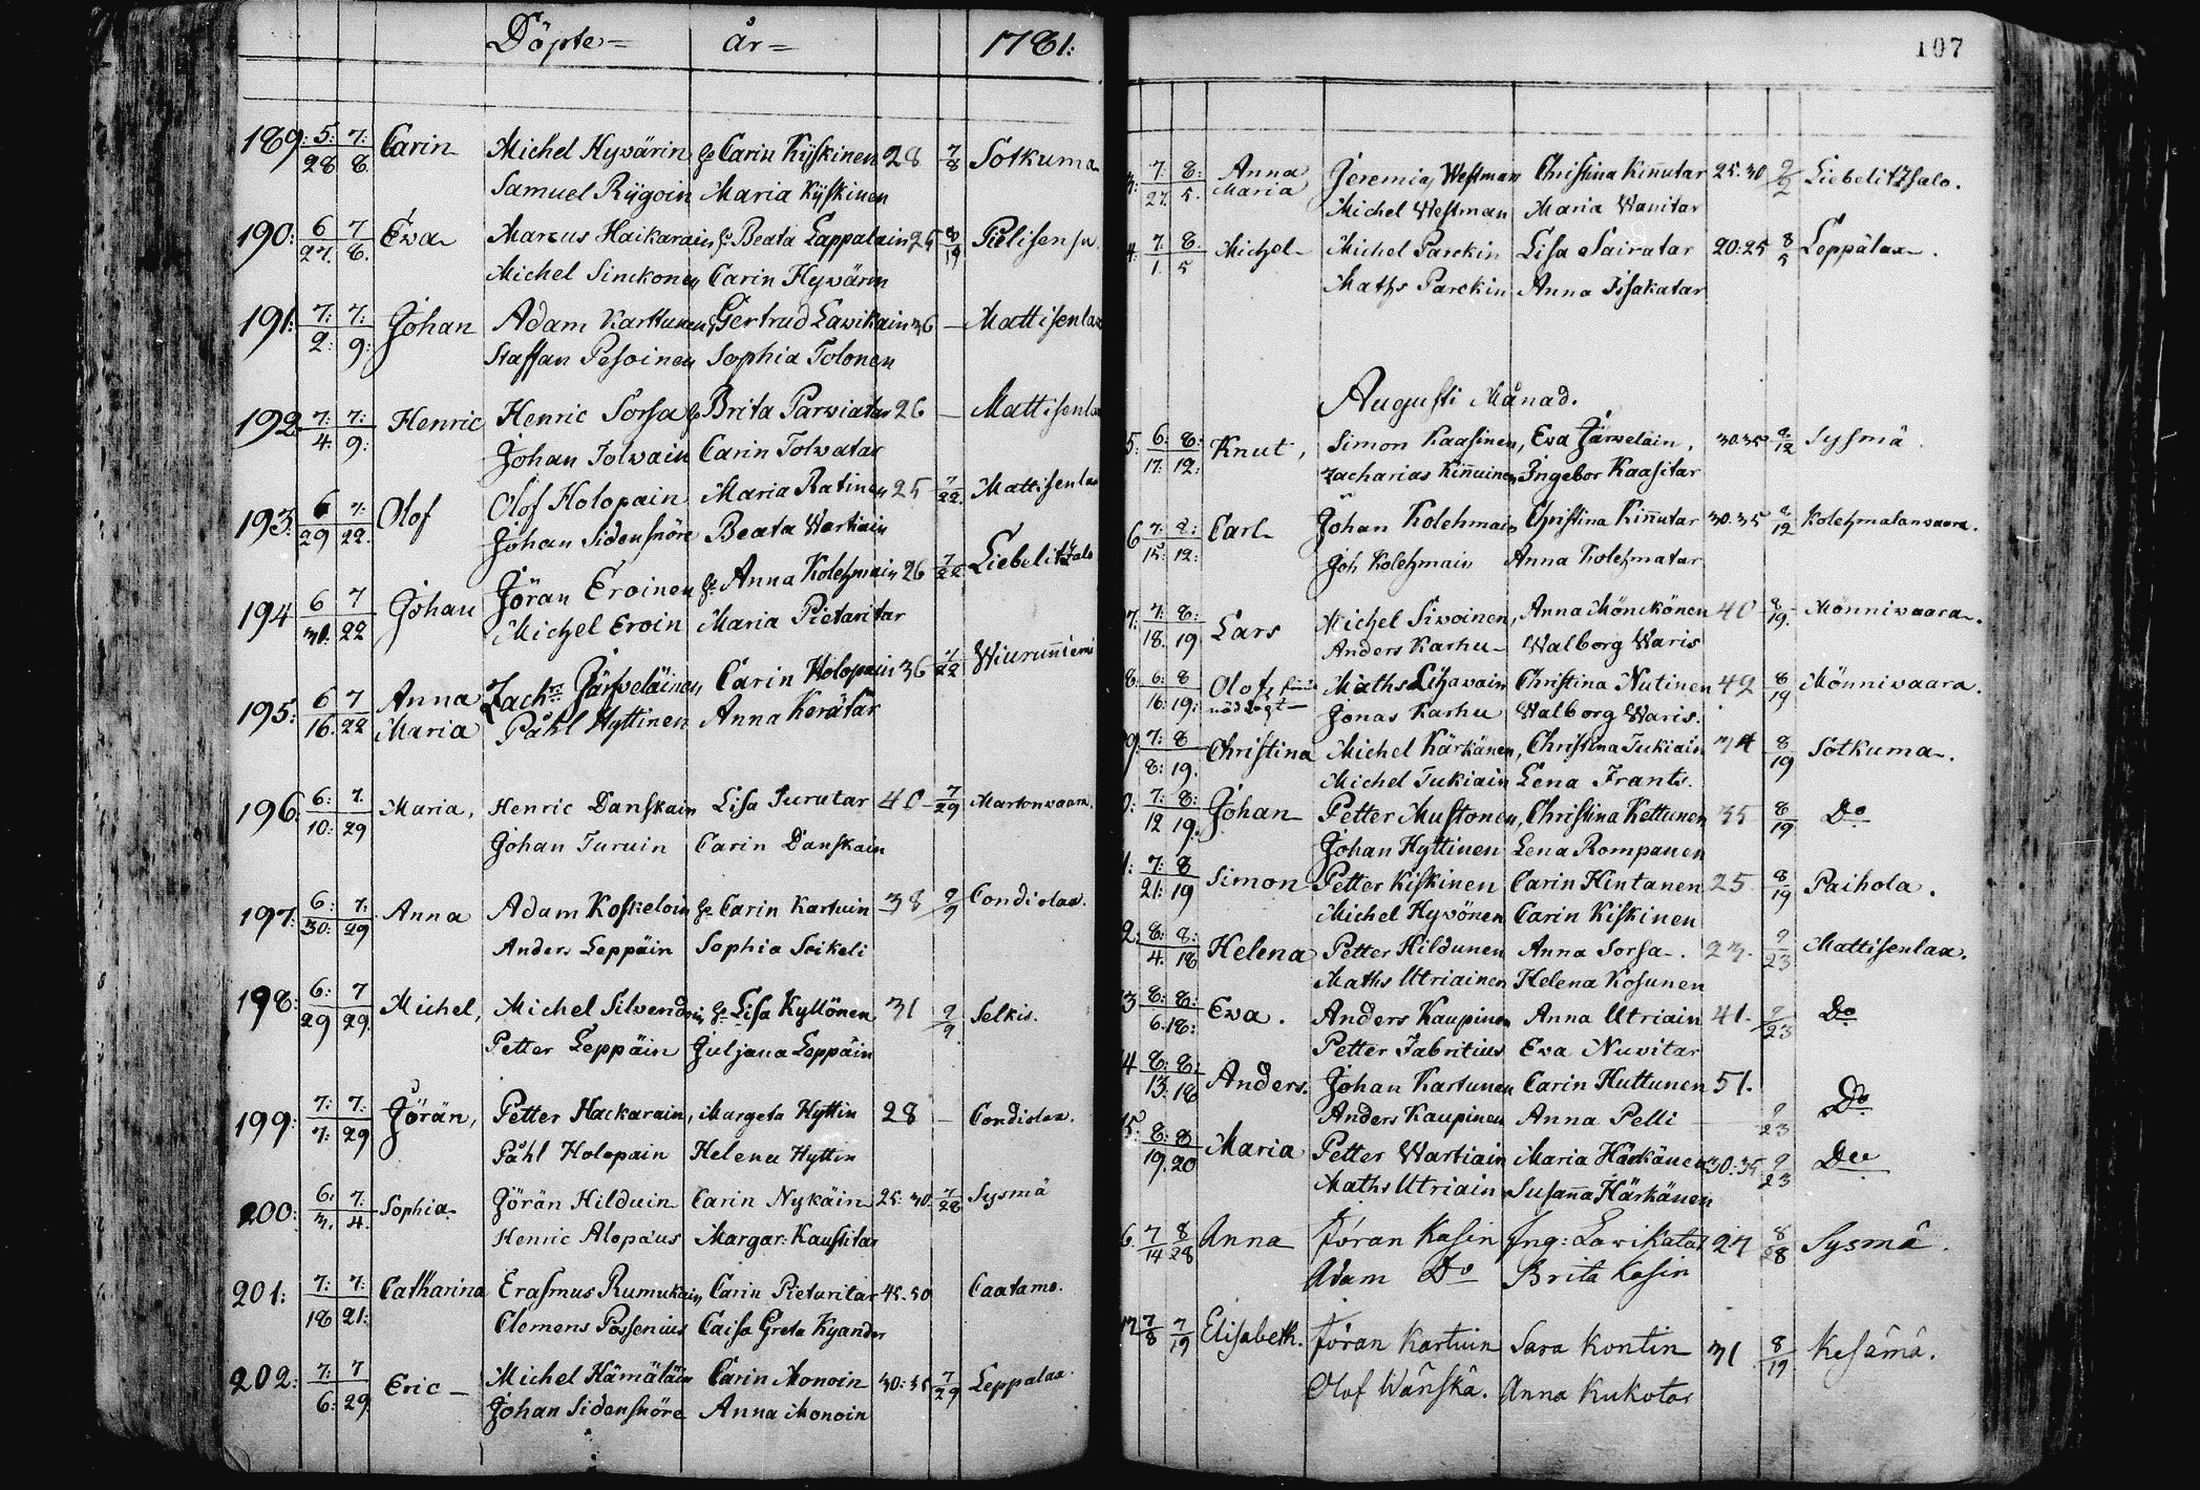 Döpte= år= 1781:
189: 5: 7: Carin Michel Hyvärin & Carin Kijskinen 28 7 Sotkuma
28 8. Samuel Rijgoin Maria Kijskinen 8
190: 6 7 Ewa Marcus Haikarain & Beata Lappalain 25 8 Pielisensu
27. 8. Michel Sinckonen Carin Hyvärin 19
191: 7: 7: Johan Adam Karttunen & Gertrud Lavikain 36 — Mattisenlax
2: 9: Staffan Pesoinen Sophia Tolonen
192: 7: 7: Henric Henric Sorsa & Brita Parviatar 26 — Mattisenlax
4: 9: Johan Tolvain Carin Tolvatar
193: 6 7: Olof Olof Holopain Maria Ratinen 25 7 Mattisenlax
29 22. Johan Sidensnöre Beata Wartiain 22.
194 6 7 Johan Jöran Eroinen & Anna Kolehmain 26 7 Liebelitzsalo
30. 22 Michel Eroin Maria Pietaritar 22
195: 6 7 Anna Zachr Järfveläinen Carin Holopain 36 7 Wiuruniemi
16. 22 Maria Påhl Hyttinen Anna Kerätär 22
196: 6: 7. Maria, Henric Danskain Lisa Turutar 40 7 Martonvaara.
10: 29 Johan Turuin Carin Danskain 29
197: 6: 7: Anna Adam Koskeloin & Carin Kartuin 38 9 Condiolax.
30: 29 Anders Leppäin Sophia Seikeli 9
198: 6: 7 Michel, Michel Silvendoin & Lisa Kyllönen 31 9 Selkis.
29 29. Petter Leppäin Juljana Leppäin 9.
199: 7: 7: Jörän, Petter Hackarain, Margeta Hyttin 28 — Condiolax.
7: 29 Påhl Holopain Helena Hyttin
200: 6: 7. Sophia Jörän Hilduin Carin Nykäin 25: 30. 7 Sysmä
3. 4. Henric Alopäus Margar: Kaustitar 28
201: 7: 7: Catharina Erasmus Rumukain Carin Pietaritar 45. 50 Caatamo.
18 21: Clemens Possenius Caisa Greta Kyander
202: 7: 7 Eric — Michel Hämäläin Carin Monoin 30: 35 7 Leppalax.
6: 29. Johan Sidensnöre Anna Monoin 29
107
3: 7: 8: Anna Jeremias Westman Christina Kinnutar 25. 30 9 Liebelitzsalo.
27. 5. Maria Michel Westman Maria Wanitar 2
4: 7. 8. Michel Michel Parckin Lisa Sairatar 20: 25 8 Leppälax.
1. 5 Maths Parckin Anna Issakatar 5
Augusti Månad.
5: 6: 8: Knut, Simon Kaasinen, Ewa Järveläin, 30. 35 8 Sysmä
17: 12: Zacharias Kinnuinen Ingebor Kaasitar 12
6 7: 8: Carl Johan Kolehmain Christina Kinnutar 30. 35 8 Kolehmalanvaara.
15: 12: Joh Kolehmain Anna Kolehmatar 12
7: 7: 8: Lars Michel Sivoinen, Anna Mönckönen 40 8 Mönnivaara.
18. 19 Anders Karhu — Walborg Waris 19.
8. 6: 8 Olof, Maths Lihavain Christina Nutinen 42 8 Mönnivaara.
16. 19: Jonas Karhu Walborg Waris. 19
9. 7: 8 Christina Michel Kärkänen, Christina Tukiain 34 8 Sotkuma.
8: 19. Michel Tukiain Lena Frants. 19
0: 7: 8: Johan Petter Mustonen, Christina Kettunen 35 8 Do
12 19. Johan Hyttinen Lena Rompanen 19
1: 7: 8 Simon Petter Kiskinen Carin Hintanen 25 8 Paihola.
21: 19 Michel Hyvönen Carin Kiskinen 19
2: 8: 8: Helena Petter Hildunen Anna Sorsa. 23. 9 Mattisenlax.
4. 18 Maths Utriainen Helena Kosunen 23
3 8: 8: Ewa. Anders Kaupinen Anna Utriain 41. 9 Do
6. 18: Petter Fabritius Ewa Nuvitar 23
4 8: 8: Anders. Johan Kartunen Carin Huttunen 51. Do
13. 18 Anders Kaupinen Anna Pelli 9 23
5: 8: 8 Maria Petter Wartiain Maria Härkänen 30: 35 9 Do
19. 20 Maths Utriain Susanna Härkänen 23
6. 7 8 Anna Jöran Kasin Ing: Lavikatar 27 8 Sysmä.
14 28 Adam Do Brita Kasin 28
7 7 Elisabeth. Jöran Kartuin Sara Kontin 31 8 Kesämä.
8 19 Olof Wänskä. Anna Kukotar 19